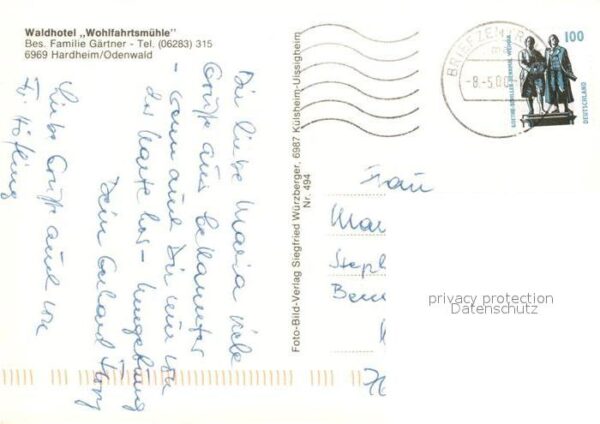 Waldhotel „Wohlfahrtsmühle"
Bes. Familie Gärtner - Tel. (06283) 315
6969 Hardheim/Odenwald
Du liebe Maria viele
Grüße aus bekannter
- wenn auch Dir nur von
der Karte her - Umgebung
Dein Gerhard
Liebe Grüße auch von
Foto-Bild-Verlag Siegfried Würzberger, 6987 Külsheim-Uissigheim
Nr. 494
BRIEFZENTR
-8.-5.00
100
GOETHE-SCHILLER-DENKMAL WEIMAR
DEUTSCHLAND
Frau
Mar
Steph
privacy protection
Datenschutz